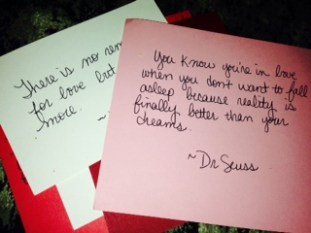 There is no rem
for love but
more.
~
You know you're in love
when you don't want to fall
asleep because reality is
finally better than your
dreams.
~Dr Seuss